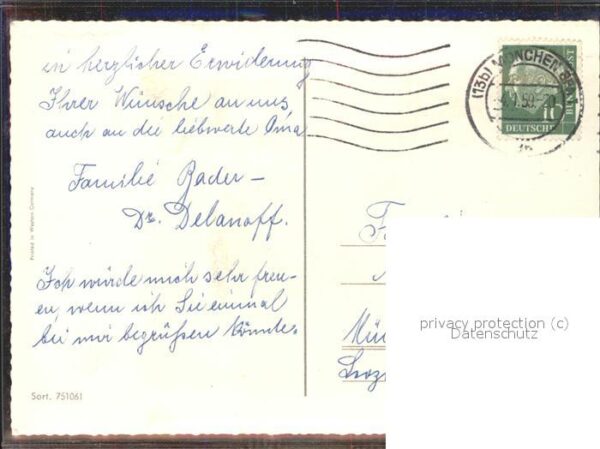 in herzlicher Erwiderung
Ihrer Wünsche an uns
auch an die liebwerte Oma
Familie Bader –
Dr. Delanoff.
Ich würde mich sehr freu-
en, wenn ich Sie einmal
bei mir begrüßen könnte.
Sort. 751061
Printed in Western Germany
(13b) MÜNCHEN
10
DEUTSCHE
Mün
privacy protection (c)
Datenschutz